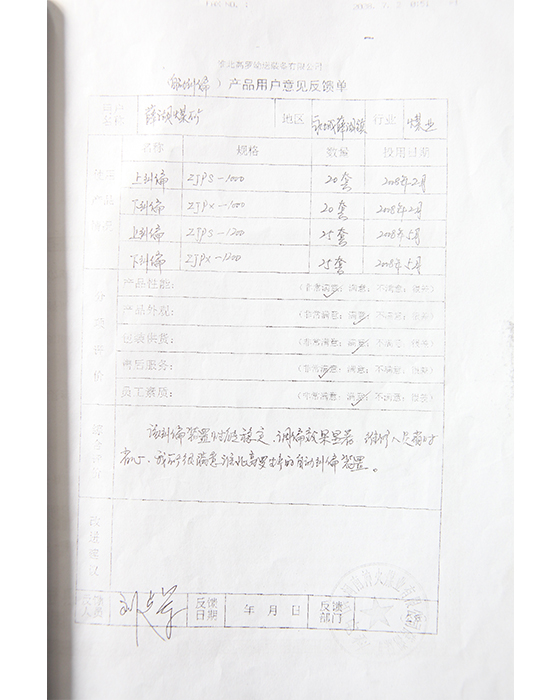 淮北高萝输送装备有限公司
(自动纠偏)产品用户意见反馈单
客户名称 薛湖煤矿 地区 永城薛湖镇 行业 煤业
名称 规格 数量 投用日期
上纠偏 ZJPS-1000 20套 2008年2月
产品 下纠偏 ZJPX-1000 20套 2008年2月
上纠偏 ZJPS-1200 25套 2008年5月
下纠偏 ZJPX-1200 25套 2008年5月
产品性能: (非常满意; 满意; 不满意; 很差)
产品外观: (非常满意; 满意; 不满意; 很差)
包装供货: (非常满意; 满意; 不满意; 很差)
售后服务: (非常满意; 满意; 不满意; 很差)
员工素质: (非常满意; 满意; 不满意; 很差)
该纠偏装置性能稳定、调偏效果显著、维修人员省时
省心、我矿很满意淮北高萝生产的自动纠偏装置。
改进建议
反馈日期 年 月 日 反馈部门